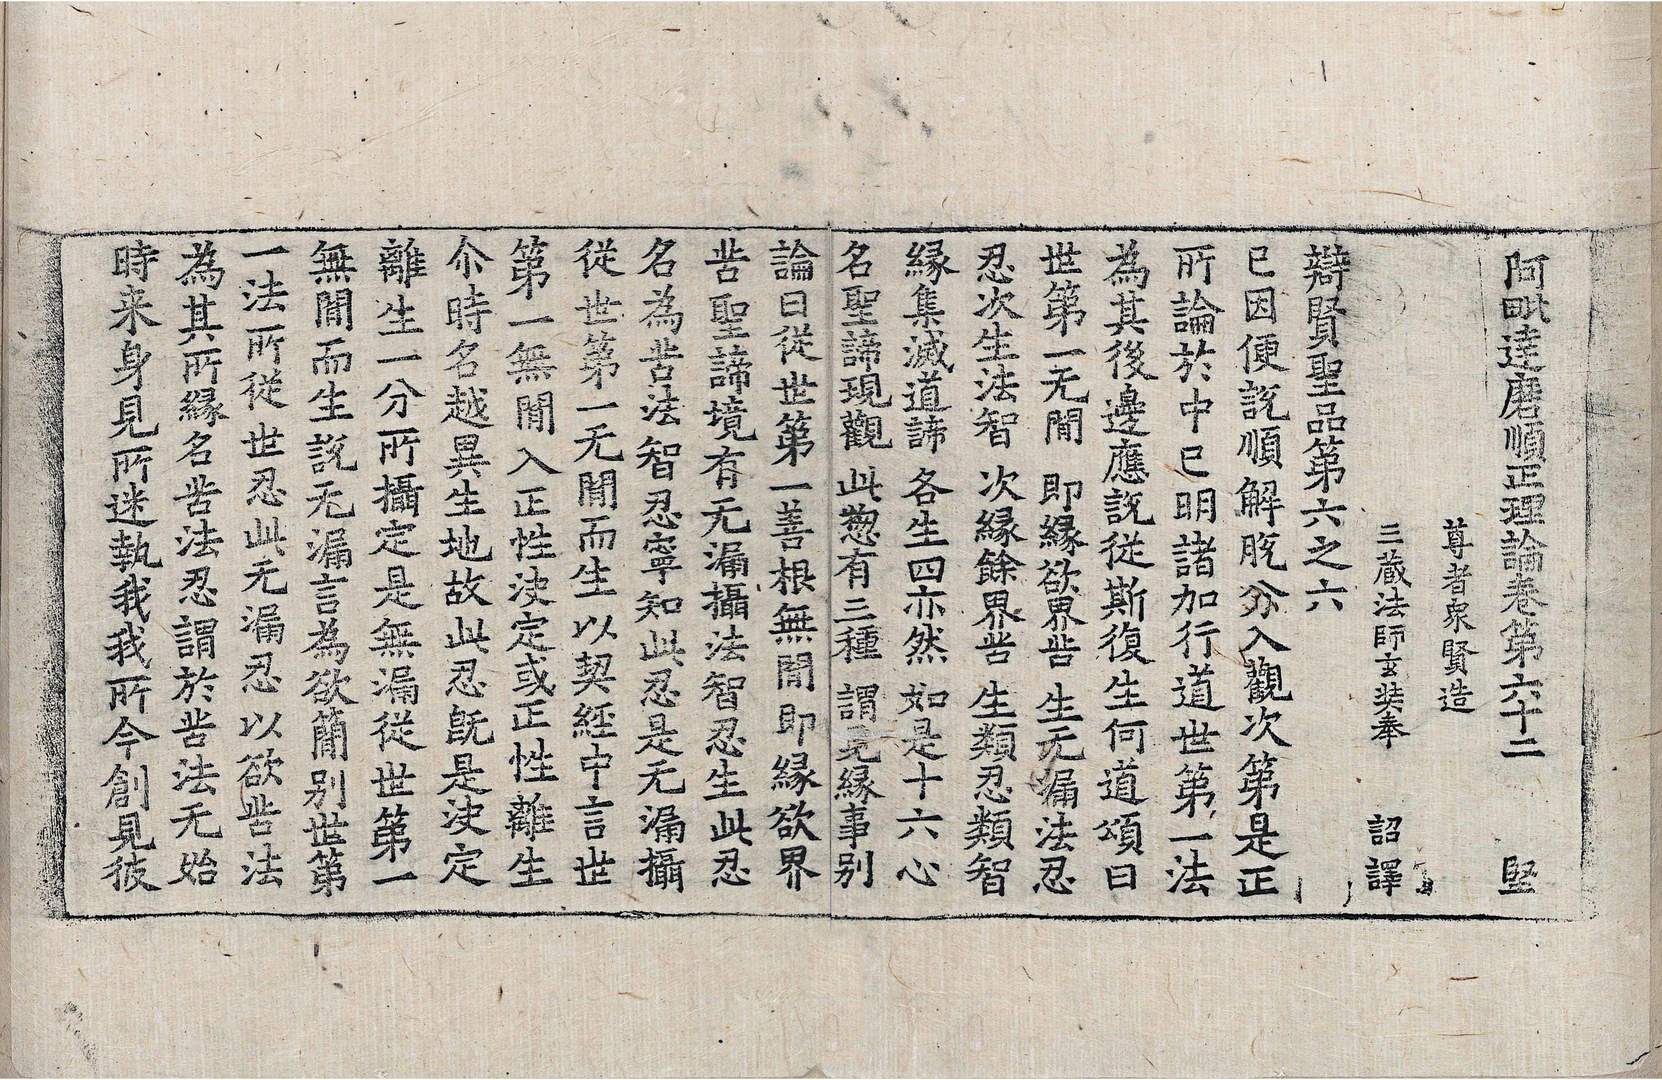 阿毗達磨順正理論卷第六十二 堅
尊者衆賢造
三藏法師玄奘奉 詔譯
辯賢聖品第六之六
已因便說順解脫分入觀次第是正
所論於中已明諸加行道世第一法
為其後邊應說從斯復生何道頌曰
世第一无閒 即緣欲界苦 生无漏法忍
忍次生法智 次緣餘界苦 生類忍類智
緣集滅道諦 各生四亦然 如是十六心
名聖諦現觀 此惣有三種 謂見緣事別
論曰從世第一善根無閒即緣欲界
苦聖諦境有无漏攝法智忍生此忍
名為苦法智忍寧知此忍是无漏攝
從世第一无閒而生以契經中言世
第一無閒入正性決定或正性離生
尒時名越異生地故此忍旣是決定
離生一分所攝定是無漏從世第一
無閒而生說无漏言為欲簡別世第
一法所從世忍此无漏忍以欲苦法
為其所緣名苦法忍謂於苦法无始
時来身見所迷執我我所今創見彼